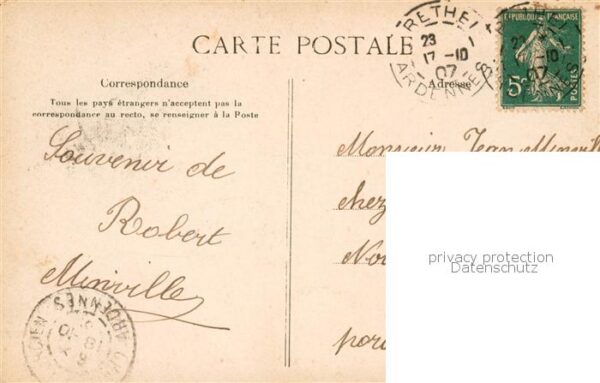 CARTE POSTALE
RETHEL
23
17-10
07
ARDENNES
REPUBLIQUE FRANÇAISE
5c
POSTES
Correspondance
Adresse
Tous les pays étrangers n'acceptent pas la
correspondance au recto, se renseigner à la Poste
Souvenir de
Robert
Minville
Monsieur Jean
chez
privacy protection
Datenschutz
ARDENNES